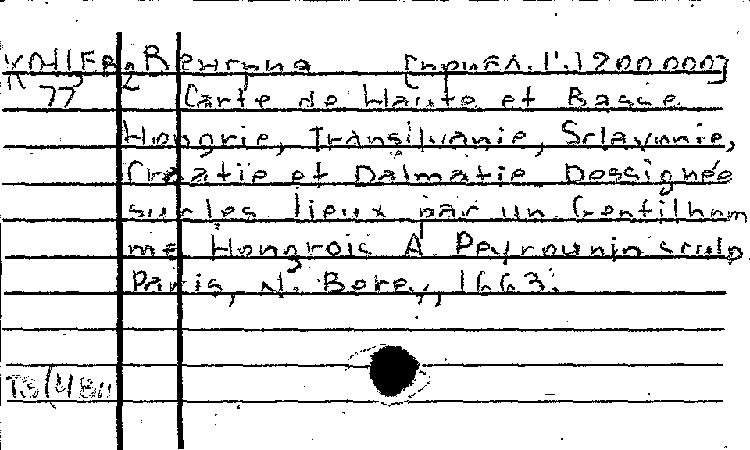 77 Carte de Haute et Basse
Hongrie, Transilvanie, Sclavonie,
Croatie et Dalmatie Dessignée
sur les lieux par un Gentilhom
me Hongrois A. Peyrounin sculp.
Paris, N. Berey, 1663.